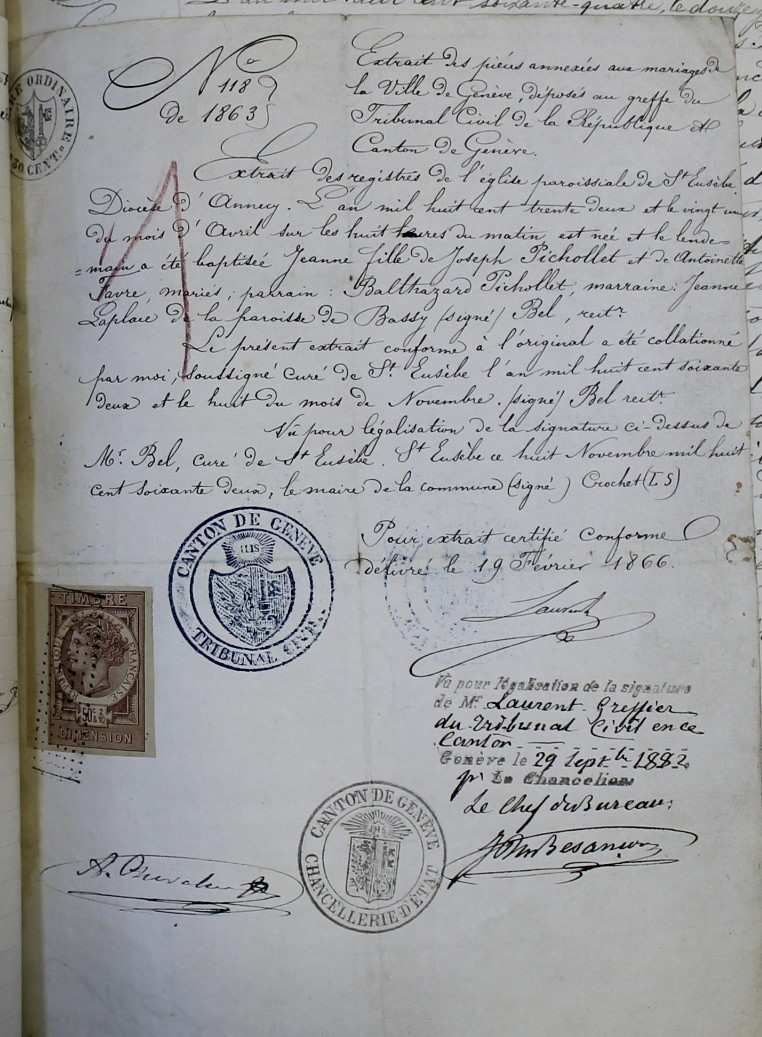 soixante-quatre, le douze
ORDINAIRE
50 CENT.
No
118
de 1863
Extrait des pièces annexées aux mariages de
la Ville de Genève, déposés au greffe du
Tribunal Civil de la République et
Canton de Genève.
Extrait des registres de l'église paroissiale de St Eusèbe
Diocèse d'Annecy. L'an mil huit cent trente deux et le vingt un
du mois d'Avril sur les huit heures du matin est née et le lende-
=main a été baptisée Jeanne fille de Joseph Pichollet et de Antoinette
Favre, mariés; parrain: Balthazard Pichollet, marraine: Jeanne
Laplace de la paroisse de Bassy (signé) Bel, rect.r
Le présent extrait conforme à l'original a été collationné
par moi, soussigné curé de St. Eusèbe l'an mil huit cent soixante
deux et le huit du mois de Novembre. (signé) Bel rect.r
Vu pour légalisation de la signature ci-dessus de
Mr. Bel, curé de St Eusèbe. St Eusèbe ce huit Novembre mil huit
cent soixante deux, le maire de la commune (signé) Crochet (L S)
Pour extrait certifié conforme
délivré le 19 Février 1866.
Laurent
CANTON DE GENÈVE
IHS
TRIBUNAL CIVIL
TIMBRE
FRANÇAISE
50 c.
DIMENSION
Vu pour légalisation de la signature
de Mr. Laurent Greffier
du Tribunal Civil en ce
Canton
Genève le 29 Septbre 1882
pr Le Chancelier
Le Chef du Bureau:
CANTON DE GENÈVE
CHANCELLERIE D'ÉTAT